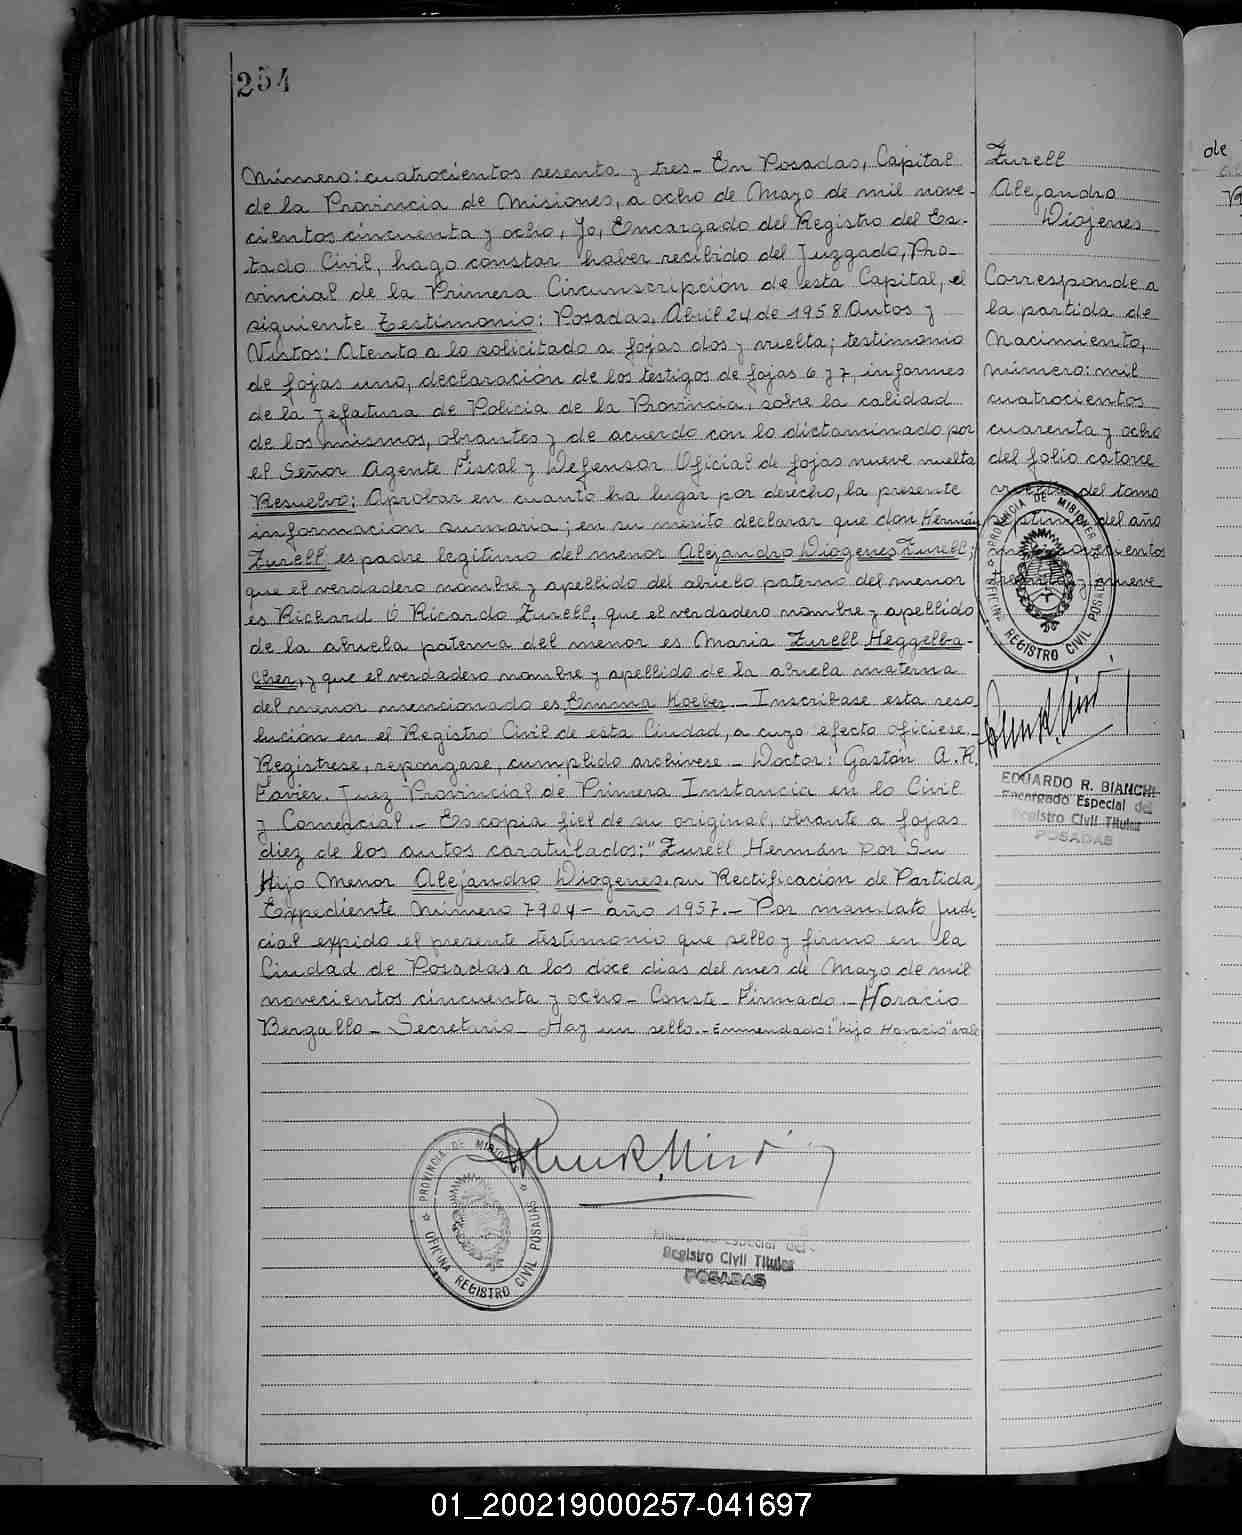 254
Número: cuatrocientos sesenta y tres_ En Posadas, Capital
de la Provincia de Misiones, a ocho de Mayo de mil nove-
cientos cincuenta y ocho, Yo, Encargado del Registro del Es-
tado Civil, hago constar haber recibido del Juzgado, Pro-
vincial de la Primera Circunscripción de esta Capital, el
siguiente Testimonio: Posadas, Abril 24 de 1958 Autos y
Vistos: Atento a lo solicitado a fojas dos y vuelta; testimonio
de fojas uno, declaración de los testigos de fojas 6 y 7, informes
de la Jefatura de Policia de la Provincia, sobre la calidad
de los mismos, obrantes y de acuerdo con lo dictaminado por
el Señor Agente Fiscal y Defensor Oficial de fojas nueve vuelta
Resuelvo: Aprobar en cuanto ha lugar por derecho, la presente
informacion sumaria; en su merito declarar que don Hermán
Zurell; es padre legitimo del menor Alejandro Diogenes Zurell;
que el verdadero nombre y apellido del abuelo paterno del menor
es Richard ó Ricardo Zurell, que el verdadero nombre y apellido
de la abuela paterna del menor es Maria Zurell Heggelba-
cher, y que el verdadero nombre y apellido de la abuela materna
del menor mencionado es Emma Koeber_ Inscribase esta reso
lución en el Registro Civil de esta Ciudad, a cuyo efecto oficiese_
Registrese, repongase, cumplido archivese_ Doctor: Gastón A. R.
Favier. Juez Provincial de Primera Instancia en lo Civil
y Comercial._ Es copia fiel de su original, obrante a fojas
diez de los autos caratulados: "Zurell Hermán por Su
Hijo Menor Alejandro Diogenes. su Rectificación de Partida,
Expediente Número 7904- año 1957._ Por mandato Judi
cial expido el presente testimonio que sello y firmo en la
Ciudad de Posadas a los doce dias del mes de Mayo de mil
novecientos cincuenta y ocho_ Conste_ Firmado_ Horacio
Bergallo_ Secretario_ Hay un sello._ Enmendado: "hijo Horacio" vale
Zurell
Alejandro
Diojenes
Corresponde a
la partida de
Nacimiento,
número: mil
cuatrocientos
cuarenta y ocho
del folio catorce
del tomo
del año
y nueve
PROVINCIA DE MISIONES
OFICINA REGISTRO CIVIL POSADAS
EDUARDO R. BIANCHI
Encargado Especial del
Registro Civil Titular
POSADAS
PROVINCIA DE MISIONES
OFICINA REGISTRO CIVIL POSADAS
Encargado Especial del
Registro Civil Titular
POSADAS
de
01_200219000257-041697